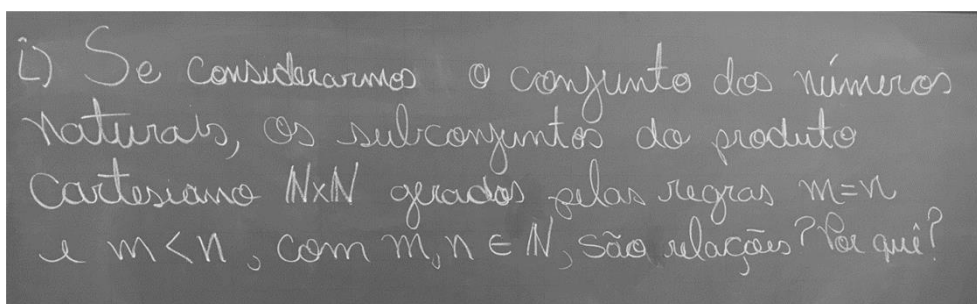 i) Se considerarmos o conjunto dos números
naturais, os subconjuntos do produto
cartesiano ℕxℕ gerados pelas regras m=n
e m<n, com m,n ∈ ℕ, são relações? Por quê?